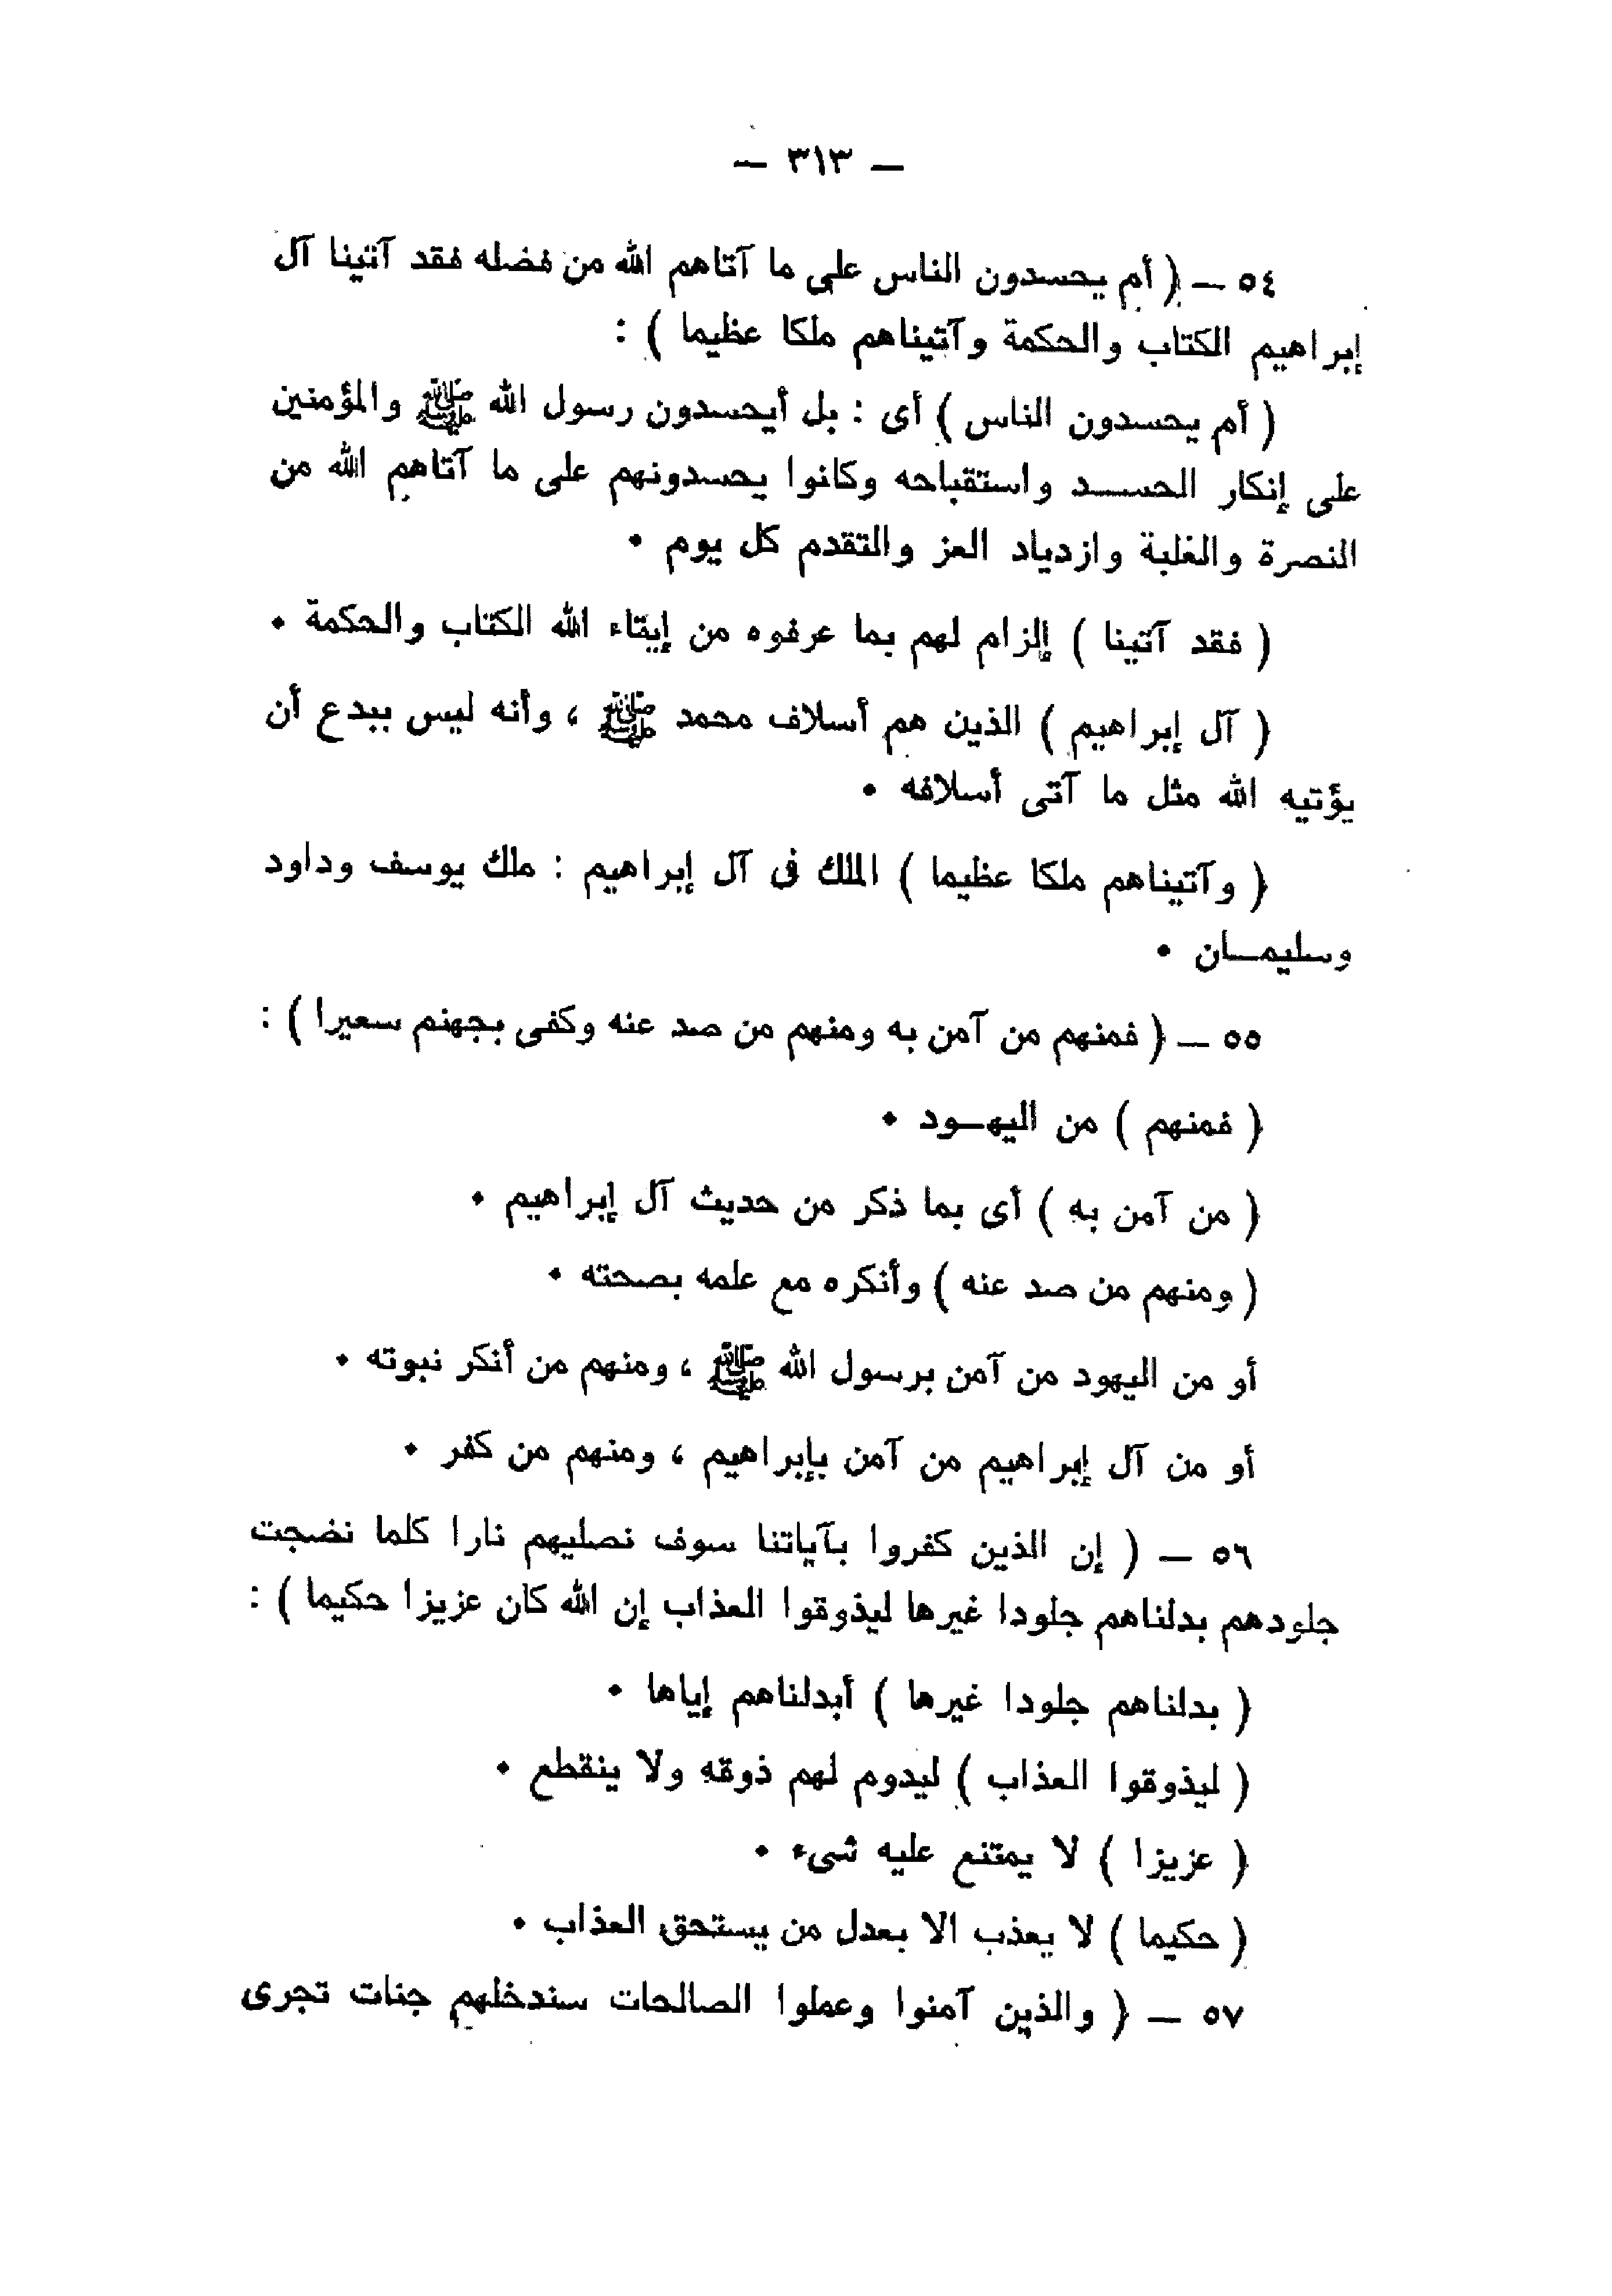 — ٣١٣ —
٥٤ — ( أم يحسدون الناس على ما آتاهم الله من فضله فقد آتينا آل
إبراهيم الكتاب والحكمة وآتيناهم ملكا عظيما ) :
( أم يحسدون الناس ) أى : بل أيحسدون رسول الله ﷺ والمؤمنين
على إنكار الحســد واستقباحه وكانوا يحسدونهم على ما آتاهم الله من
النصرة والغلبة وازدياد العز والتقدم كل يوم ٠
( فقد آتينا ) إلزام لهم بما عرفوه من إيقاء الله الكتاب والحكمة ٠
( آل إبراهيم ) الذين هم أسلاف محمد ﷺ ، وأنه ليس ببدع أن
يؤتيه الله مثل ما آتى أسلافه ٠
( وآتيناهم ملكا عظيما ) الملك فى آل إبراهيم : ملك يوسف وداود
وسليمــان ٠
٥٥ — ( فمنهم من آمن به ومنهم من صد عنه وكفى بجهنم سعيرا ) :
( فمنهم ) من اليهــود ٠
( من آمن به ) أى بما ذكر من حديث آل إبراهيم ٠
( ومنهم من صد عنه ) وأنكره مع علمه بصحته ٠
أو من اليهود من آمن برسول الله ﷺ ، ومنهم من أنكر نبوته ٠
أو من آل إبراهيم من آمن بإبراهيم ، ومنهم من كفر ٠
٥٦ — ( إن الذين كفروا بآياتنا سوف نصليهم نارا كلما نضجت
جلودهم بدلناهم جلودا غيرها ليذوقوا العذاب إن الله كان عزيزا حكيما ) :
( بدلناهم جلودا غيرها ) أبدلناهم إياها ٠
( ليذوقوا العذاب ) ليدوم لهم ذوقه ولا ينقطع ٠
( عزيزا ) لا يمتنع عليه شىء ٠
( حكيما ) لا يعذب الا بعدل من يستحق العذاب ٠
٥٧ — ( والذين آمنوا وعملوا الصالحات سندخلهم جنات تجرى